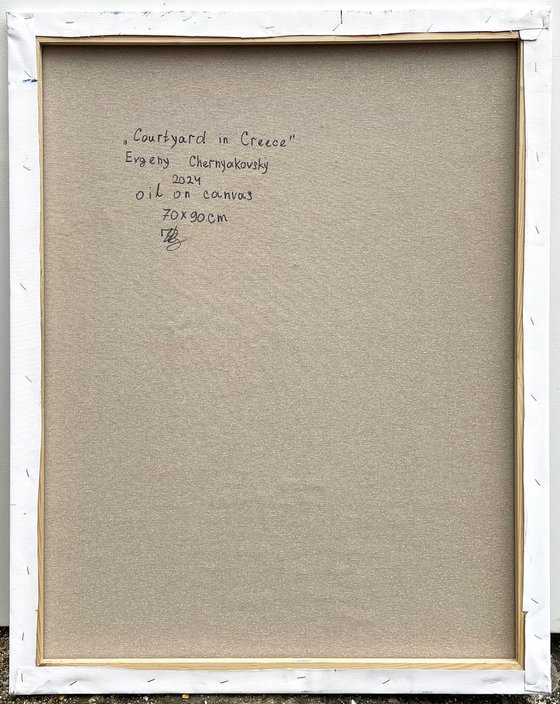 „Courtyard in Creece"
Evgeny Chernyakovsky
2024
oil on canvas
70x90cm